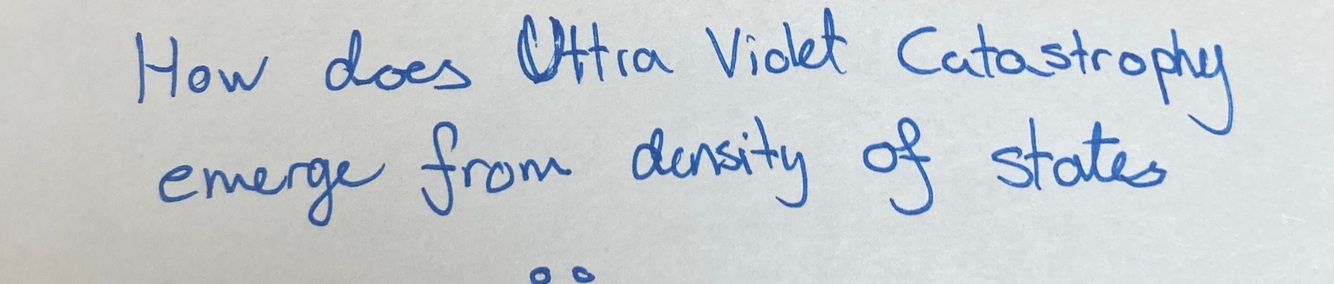 How does Ultra Violet Catastrophy
emerge from density of states